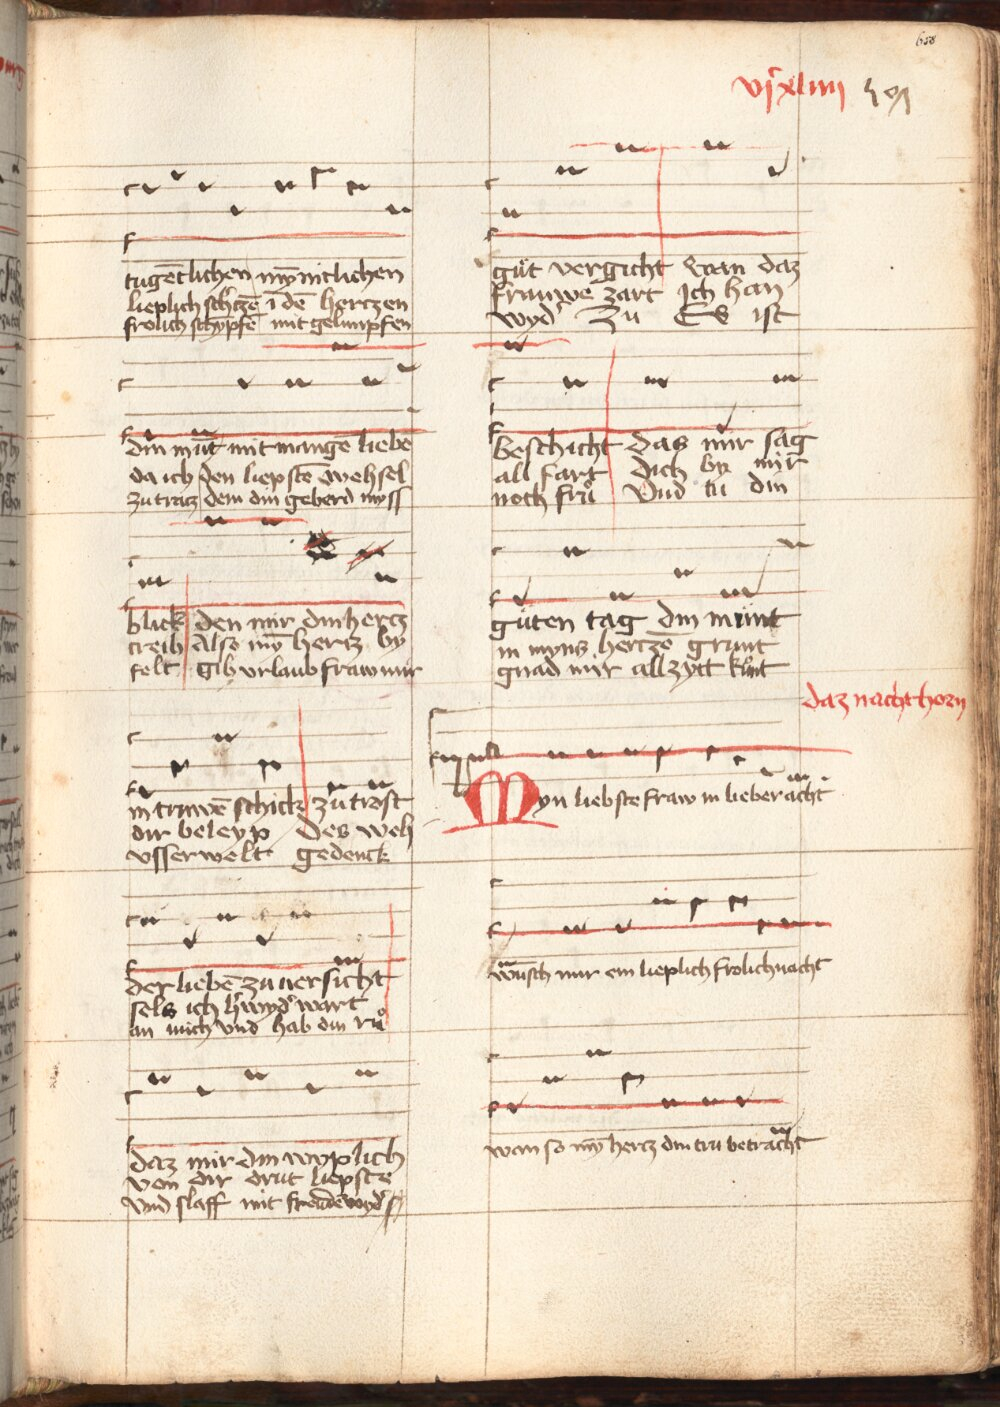 658
vjᶜxliiij
tugētlichen mynntlichen
lieplich schᵉczē ī dē herczen
frolich schypfē mit gelimpfen
din mūt mit mangē liebē
da ich den liepstē wehsel
zu tratz dem din geberd myss
blick den mir din hercz
treib Also mȳ hercz by
felt gib vrlaub fraw mir
in truwē schickt zu trost
dir beleyp Des weh
vsserwelt gedenck
der liebē zuuersicht
sels ich hᵉwydᵉ wart
an mich vnd hab din rů
daz mir din wyplich
von dir drut liepste
vnd slaff mit frewdē wydᵉ
gůt vergicht wan daz
frauwe zart Ich han
wydᵉ zu Es ist
beschicht das mir sag
all fart Dich by mir
noch frů Vnd tu din
gůten tag Din munt
in myns herczē grunt
gnad mir all zytt kunt
daz nachthorn
Myn liebste fraw in lieber acht
wūsch mir ein lieplich frolich nacht
wan so mȳ hercz din tru betracht